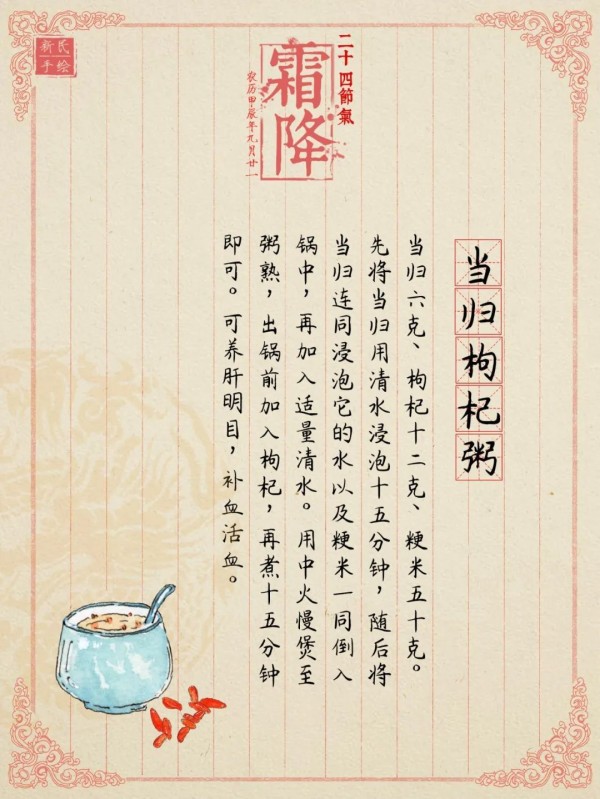 二十四節氣
霜降
农历甲辰年九月廿一
新氏
手绘
当归枸杞粥
当归六克、枸杞十二克、粳米五十克。
先将当归用清水浸泡十五分钟，随后将
当归连同浸泡它的水以及粳米一同倒入
锅中，再加入适量清水。用中火慢煲至
粥熟，出锅前加入枸杞，再煮十五分钟
即可。可养肝明目，补血活血。